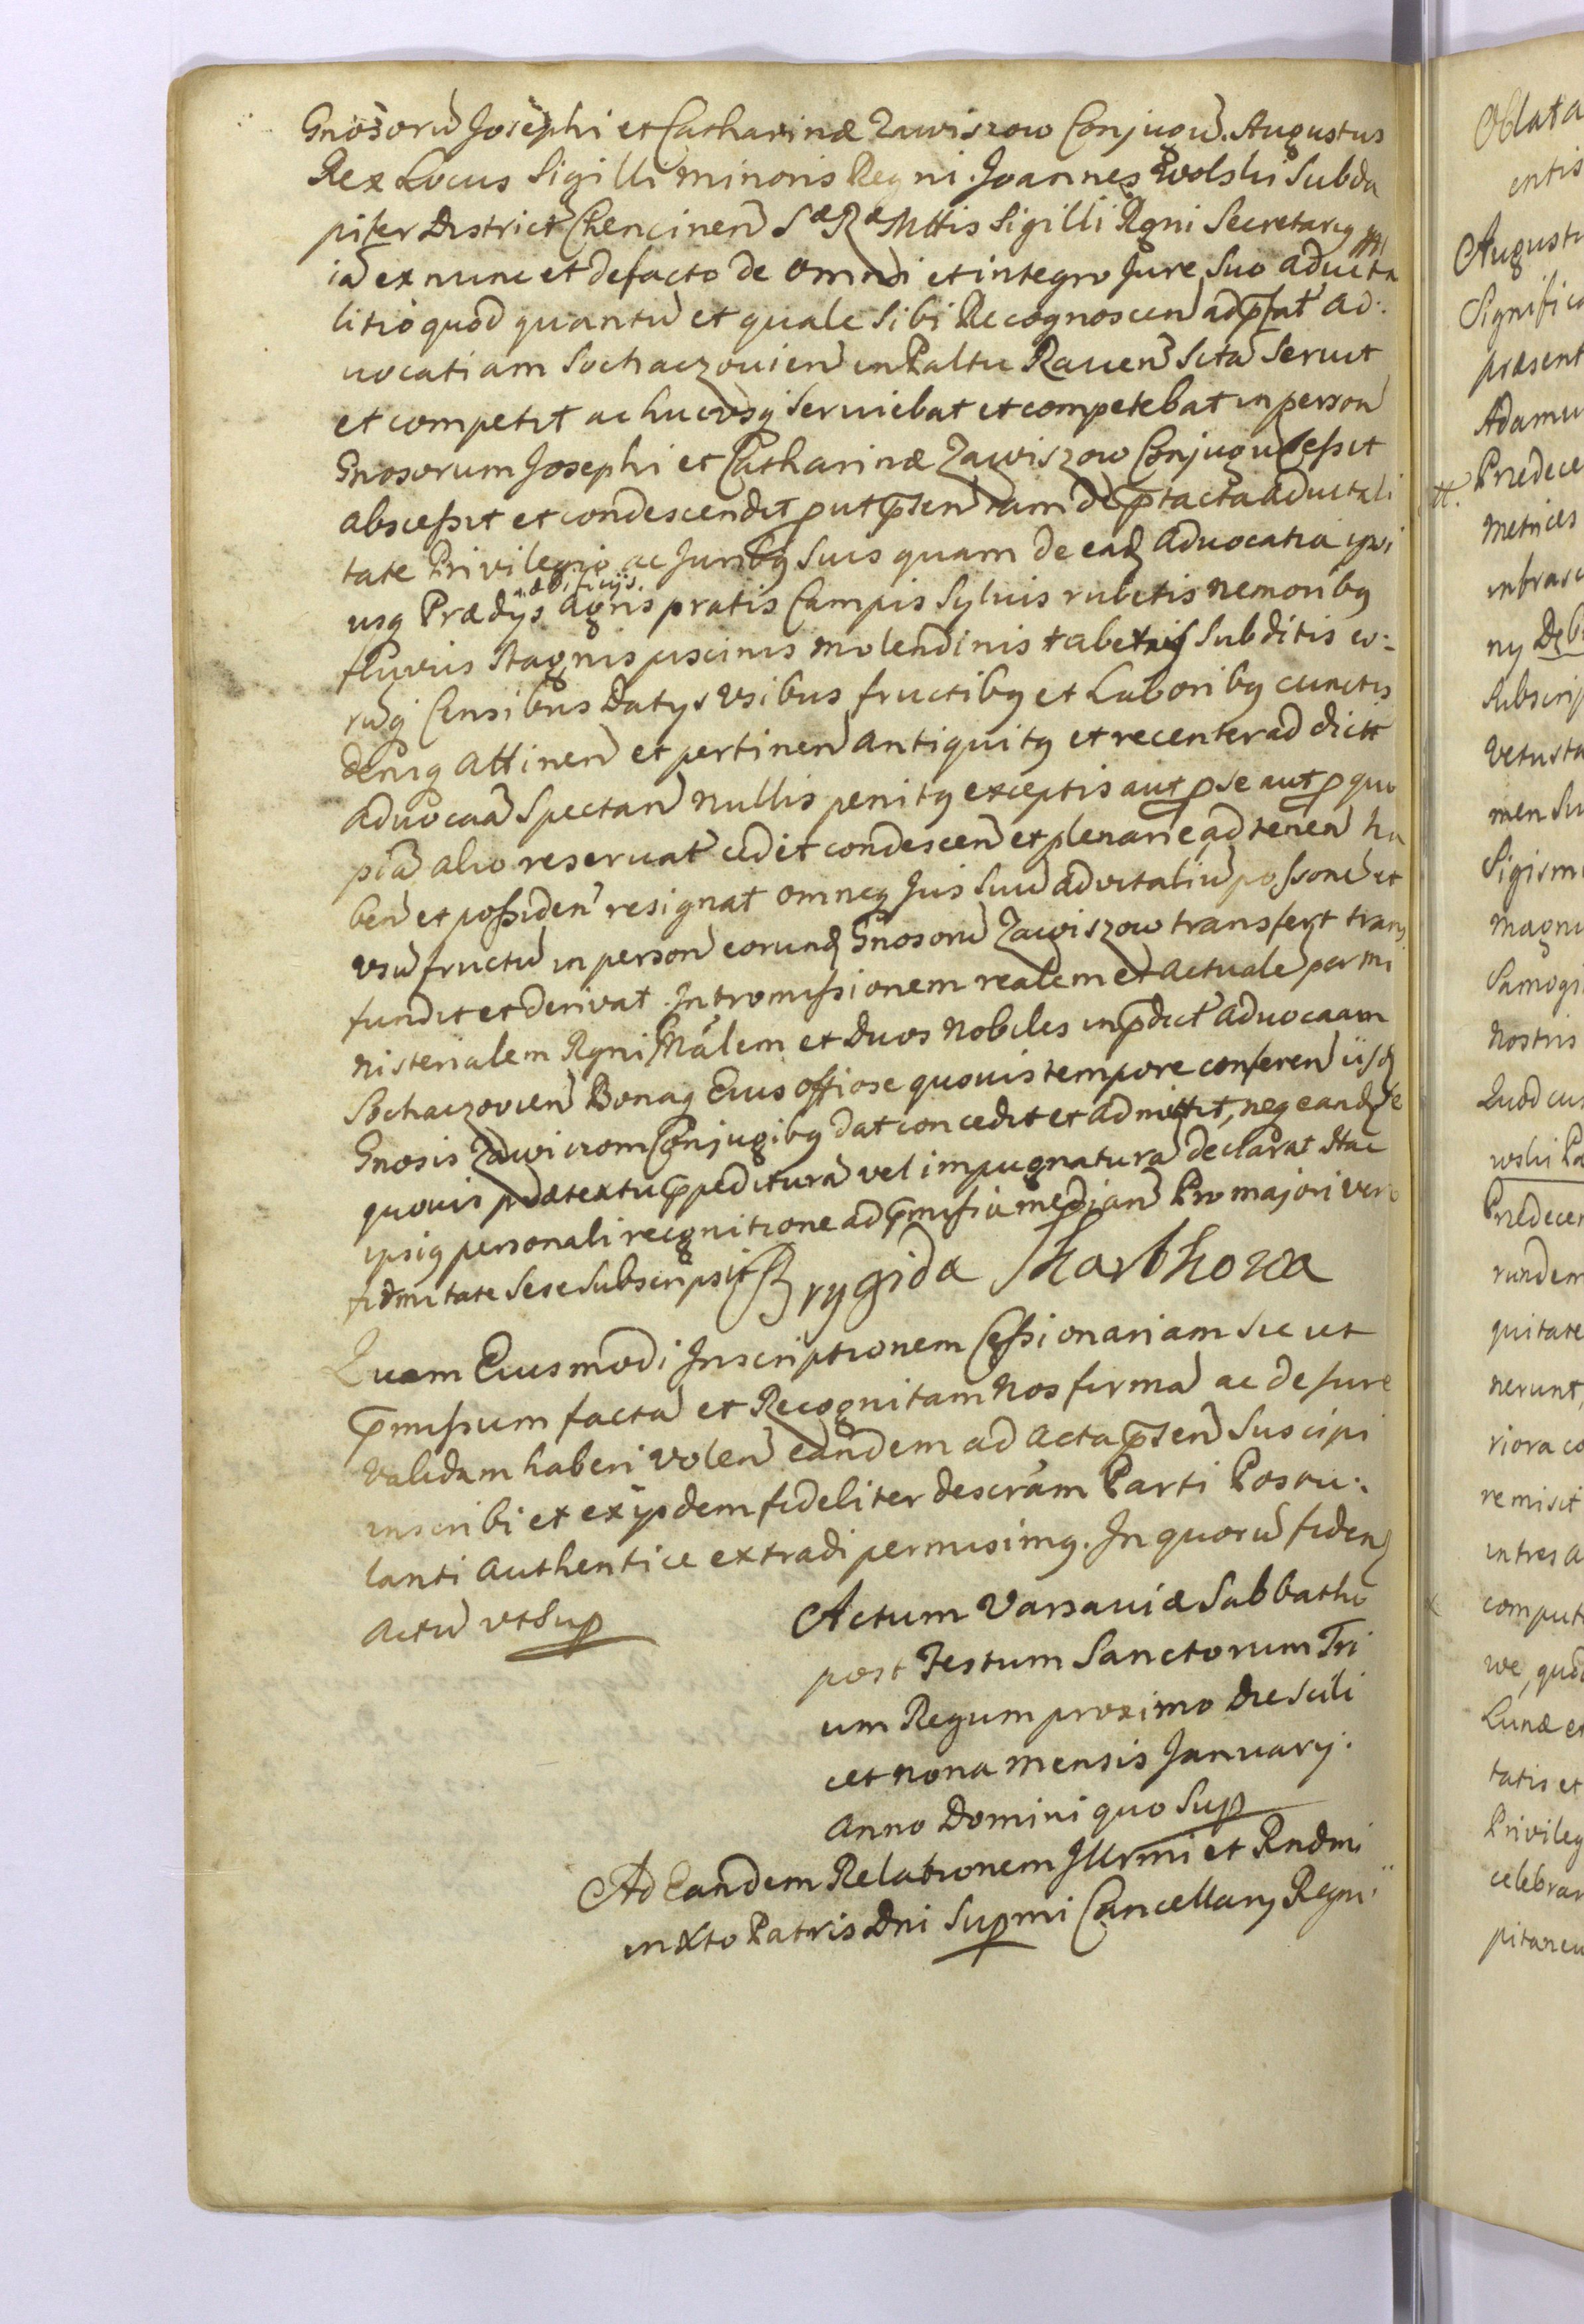 Gnosorū Josephi et Catharinæ Zawiszow Conjugū. Augustus
Rex Locus Sigilli minoris Regni. Joannes Wolski Subda
pifer District Chencinen S æ R æ Mttis Sigilli Rgni Secretarq
ia ex nunc et defacto de omni et integro Jure suo aduita
litio quod quantū et quale sibi Recognoscen ad pfat ad:
uocatiam Sochaczouien in Paltu Rauen sita seruit
et competit ac hucusq seruiebat et competebat in person
Gnosorum Josephi et Catharinæ Zawiszow Conjugū cessit
abscessit et condescendit put psen tam de ptacta aduitali
tate Privilegio ac Juribq suis quam de ead aduocatia ipsi
usq Prædijs ædificijs agris pratis Campis Syluis rubetis nemoribq
fluviis stagnis piscinis molendinis tabernis subditis eo:
rūq Censibus Datijs Usibus fructibq et Laboribq cunctis
deniq attinen et pertinen antiquitq et recenter ad dict
aduocaa spectan nullis penitq exceptis aut p se aut p quo
piā alio reseruat cedit condescen et plenarie ad tenen ha
ben et possiden resignat omneq Jus suū advitaliū possonē et
usū fructū in person eorund Gnosorū Zawiszow transfert trans
fundit et derivat. Intromissionem realem et actualē per mi
nisterialem Rgni Gnālem et duos nobiles in pdict aduocaam
Sochaczovien Bonaq Eius offiose quouis tempore conferen iisd
Gnosis Zawiszom Conjugibq dat concedit et admittit, neq eand se
quouis prætextu ppeditura vel impugnatura declarat Hac
ipsiq personali recognitione ad pmissa median Pro majori vero
fidmitate sese subscripsit Brygida Skarbkowa
Quam Eiusmodi Inscriptionem Cessionariam sic ut
pmissum facta et Recognitam nos firma ac de jure
validam haberi volen eandem ad acta psen suscipi
inscribi et ex ijsdem fideliter descram Parti Postu:
lanti authentice extradi permisimq. In quorū fidem
Actū ut sup
Actum Varsauiæ Sabbatho
post Festum Sanctorum Tri
um Regum proximo die scili
cet nona mensis Januarij.
Anno Domini quo sup
Ad Eandem Relationem Illrmi et Rndmi
in Xto Patris Dni Supmi Cancellarij Regni
Oblata
entis
Augustu
Significa
præsent
Adamu
Prædece
metrices
infrasc
ny Deb
subscrip
vetusta
men su
Sigism
magnu
Samogi
nostris
Quod cu
wski Pa
Prædece
rundem
quitate
nerunt,
riora co
remisit
intres a
comput
we, quod
Lunæ
tatis et
Privileg
celebrar
pitaneu